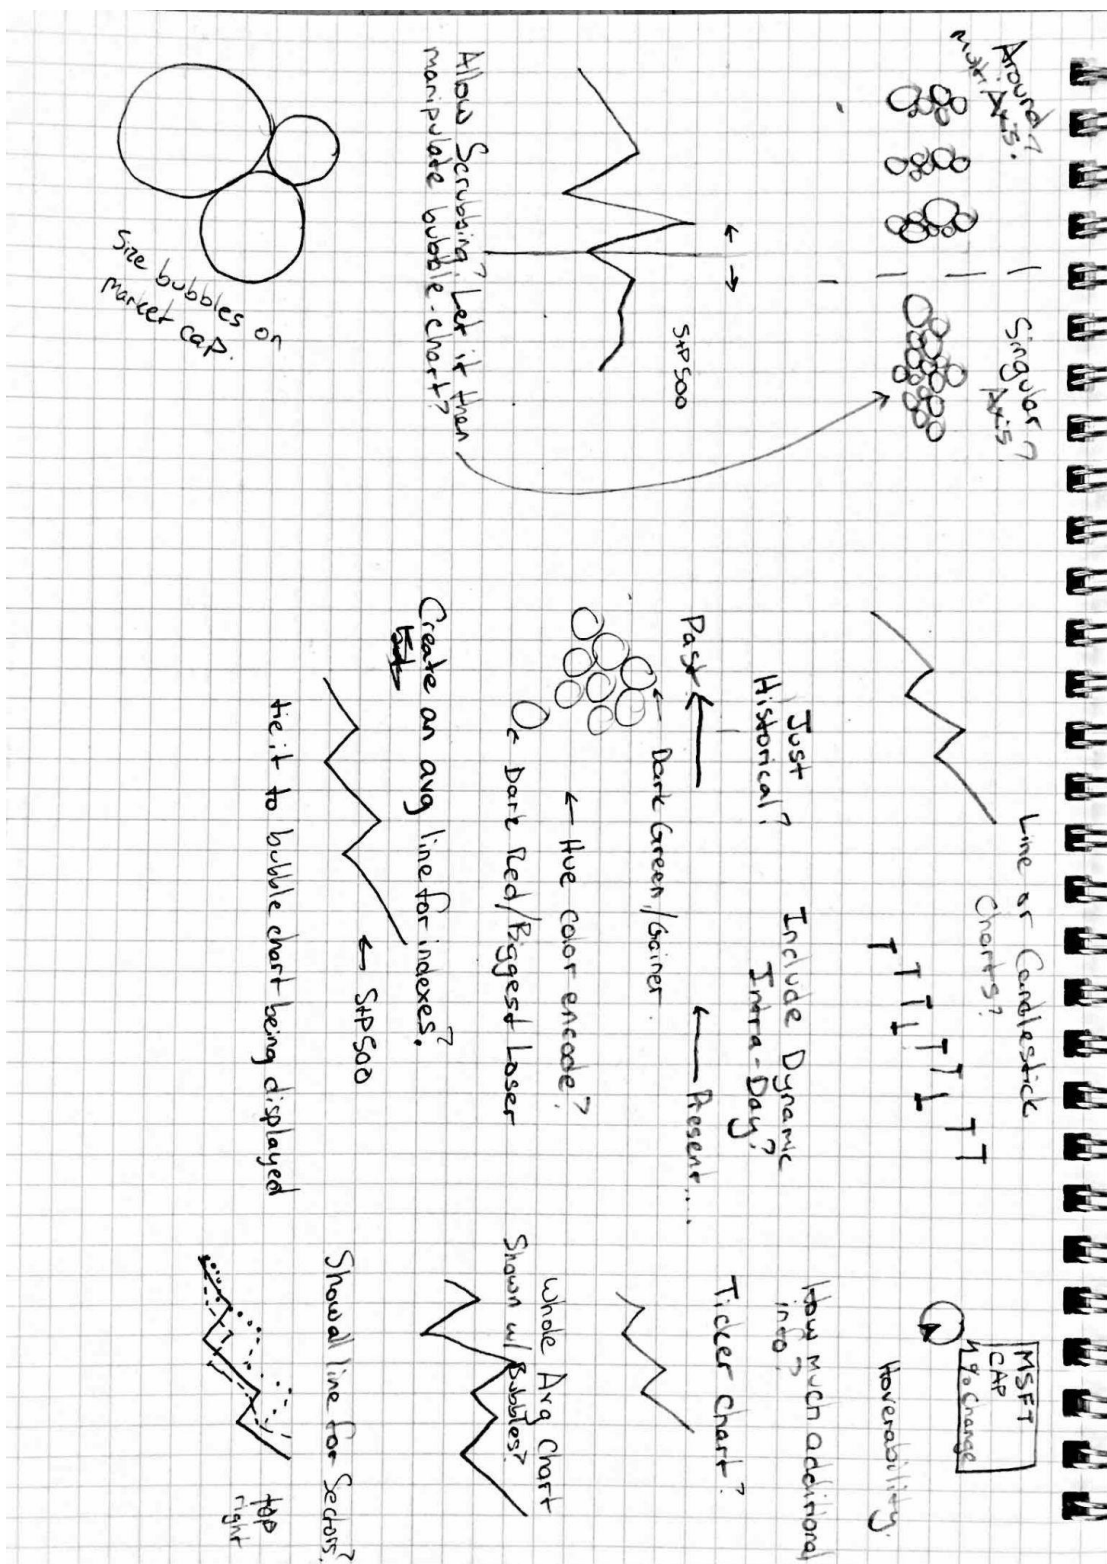 Around?
multi Axis?
Singular?
Axis?
S+P500
Allow Scrubbing? Let it then
manipulate bubble-chart?
Size bubbles on
market cap.
Line or Candlestick
Charts?
Just
Historical?
Include Dynamic
Intra-Day?
Past
Present...
Dark Green/Gainer
Hue color encode?
Dark Red/Biggest Loser
Create an avg line for indexes?
S+P500
tie it to bubble chart being displayed
MSFT
CAP
% Change
Hoverability
How much additional
info?
Ticker Chart?
Whole Avg Chart
Shown w/ Bubbles?
Show all line for Sectors?
top
right